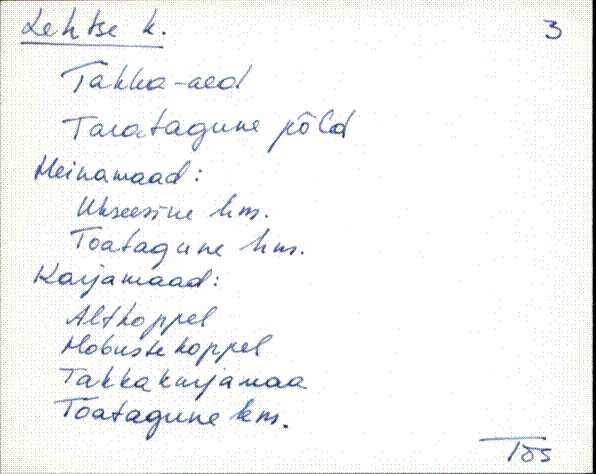 Lehtse k. 3
Takka-aed
Taratagune põld
Heinamaad:
Ukseesine hm.
Toatagune hm.
Karjamaad:
Altkoppel
Hobustekoppel
Takkakarjamaa
Toatagune km.
155